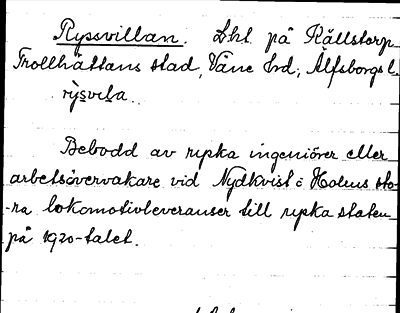 Ryssvillan. Lht. på Källstorp
Trollhättans stad, Väne hd, Älfsborgs l.
rỳsvıla.
Bebodd av ryska ingeniörer eller
arbetsövervakare vid Nydkvist & Holms sto-
-ra lokomotivleveranser till ryska staten
på 1920-talet.